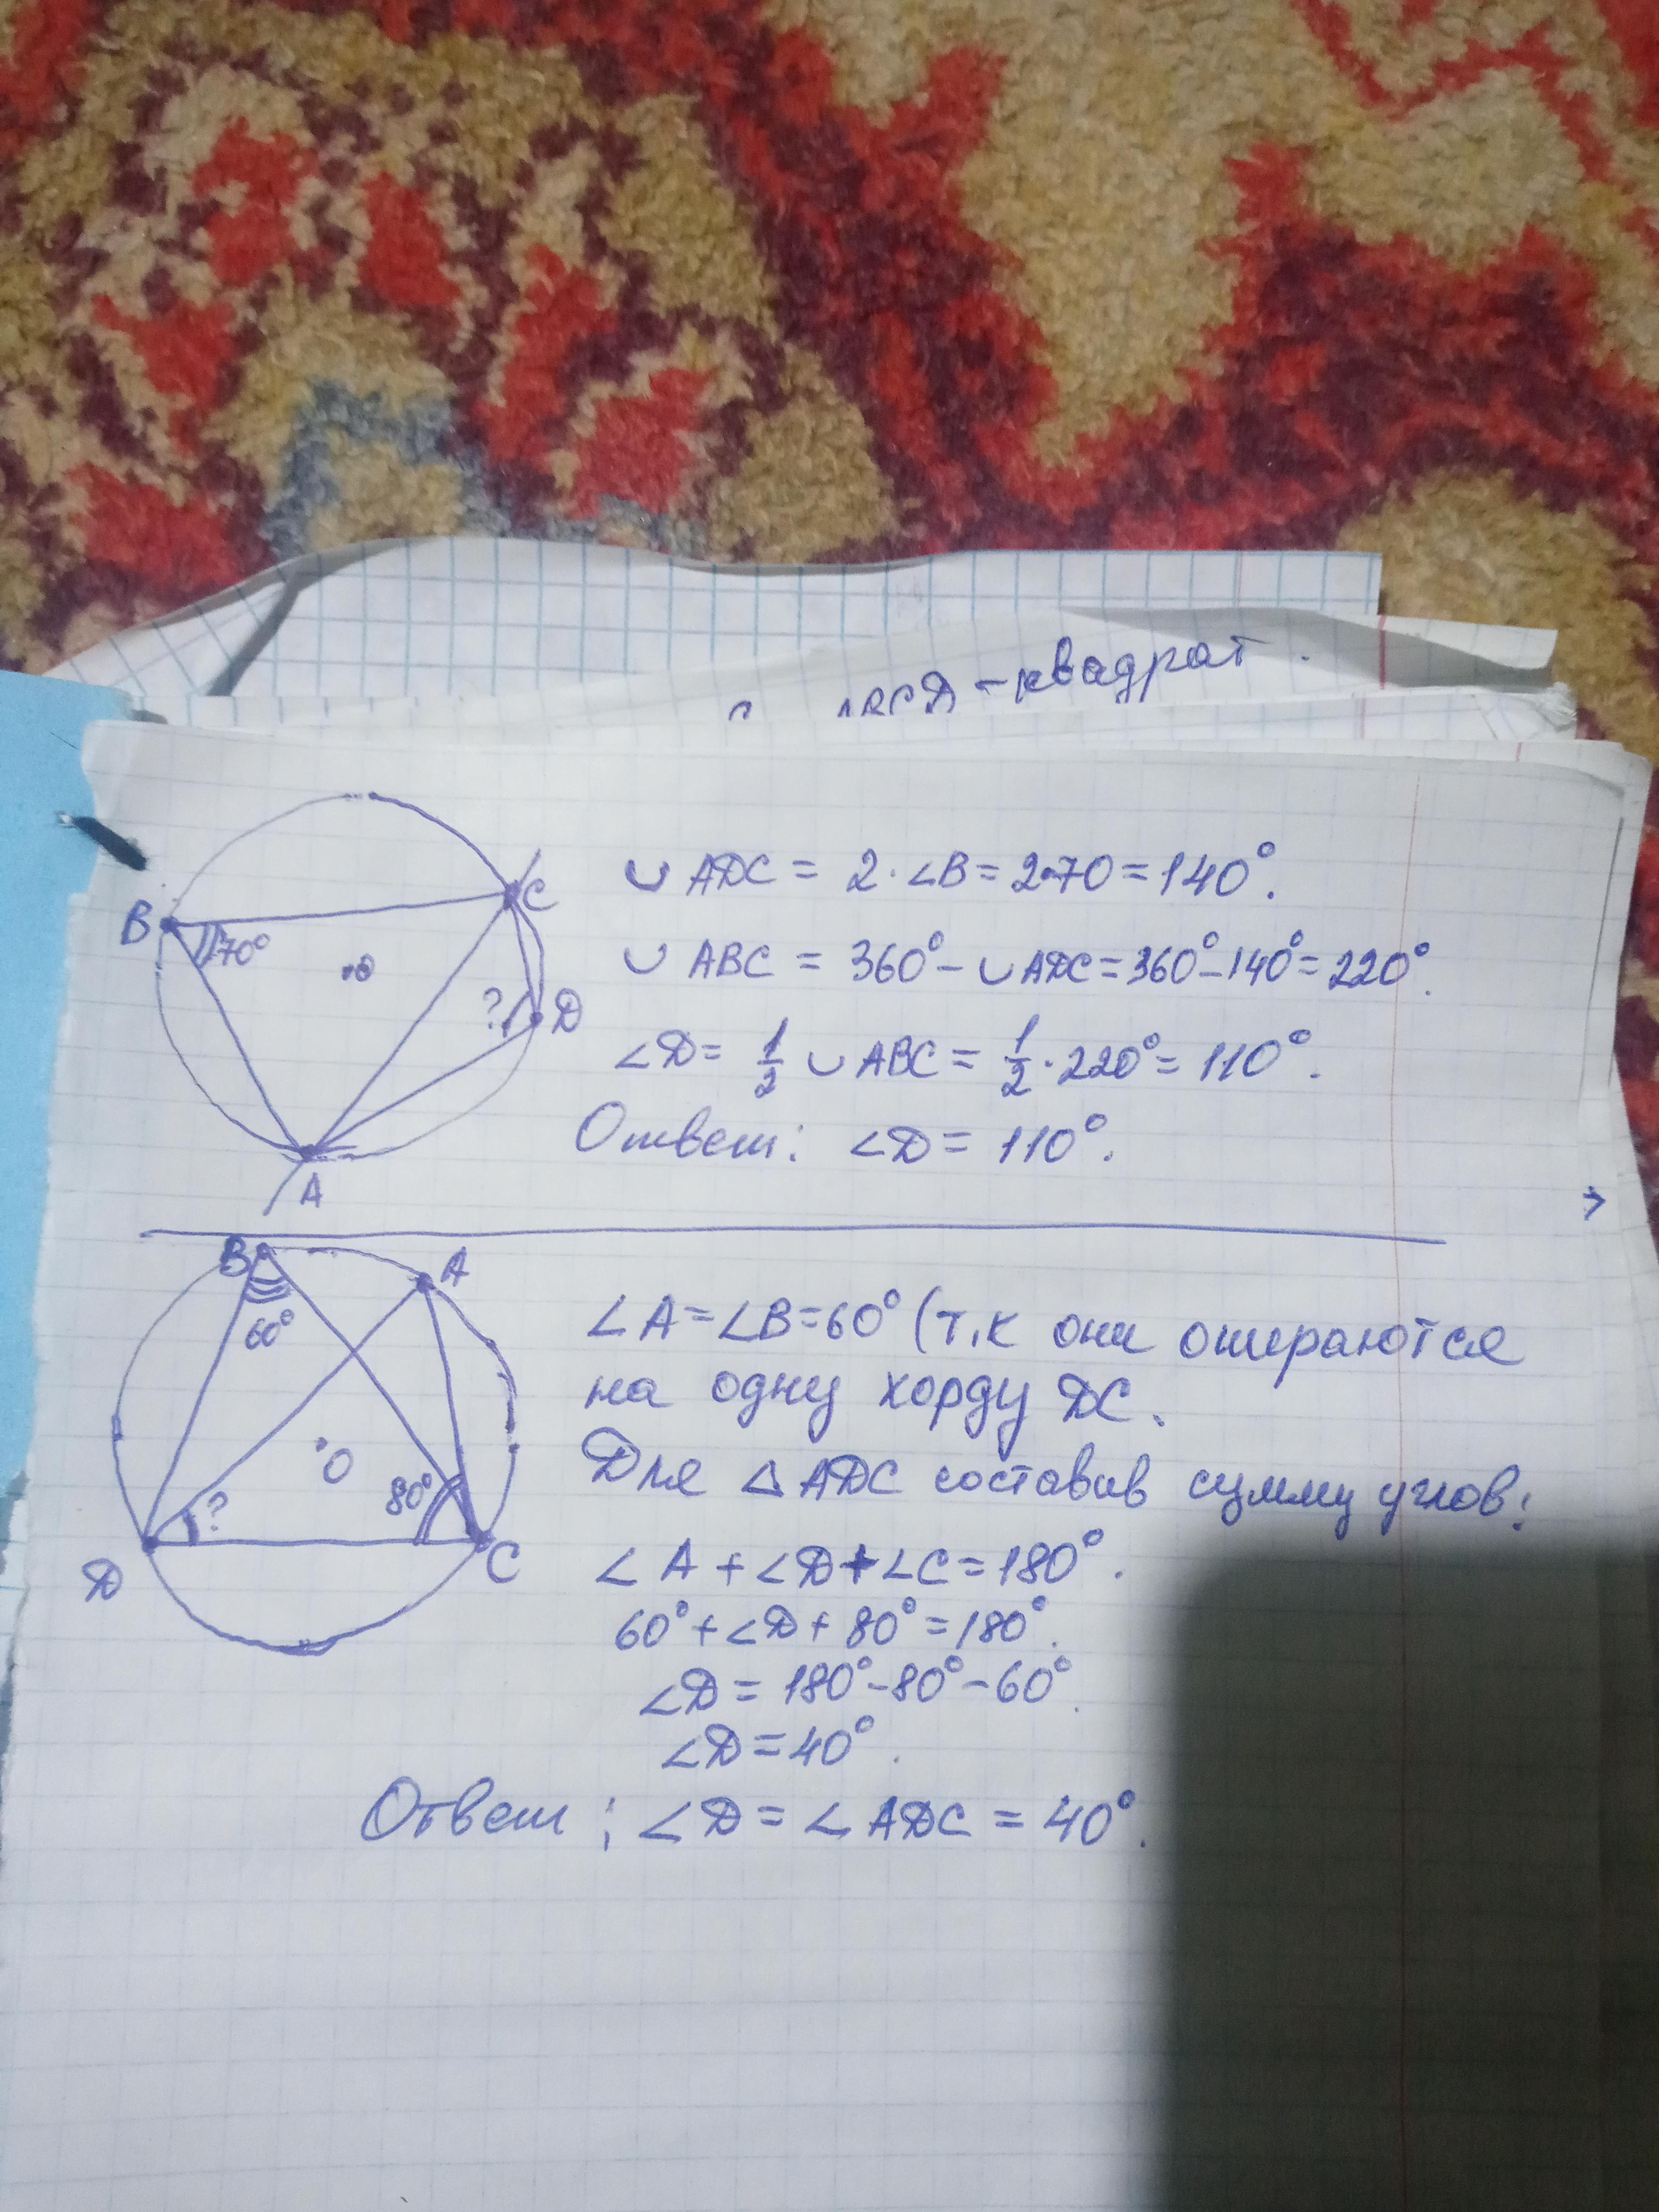 – квадрат.
B
70°
O
C
? D
A
∪ ADC = 2·∠B = 2·70 = 140°.
∪ ABC = 360° – ∪ADC = 360° – 140° = 220°.
∠D = 1/2 ∪ ABC = 1/2 · 220° = 110°.
Ответ: ∠D = 110°.
→
B
A
60°
O
80°
?
D
C
∠A = ∠B = 60° (т.к они опираются
на одну хорду DC.
Для △ADC составив сумму углов:
∠A + ∠D + ∠C = 180°.
60° + ∠D + 80° = 180°.
∠D = 180° – 80° – 60°.
∠D = 40°.
Ответ: ∠D = ∠ADC = 40°.